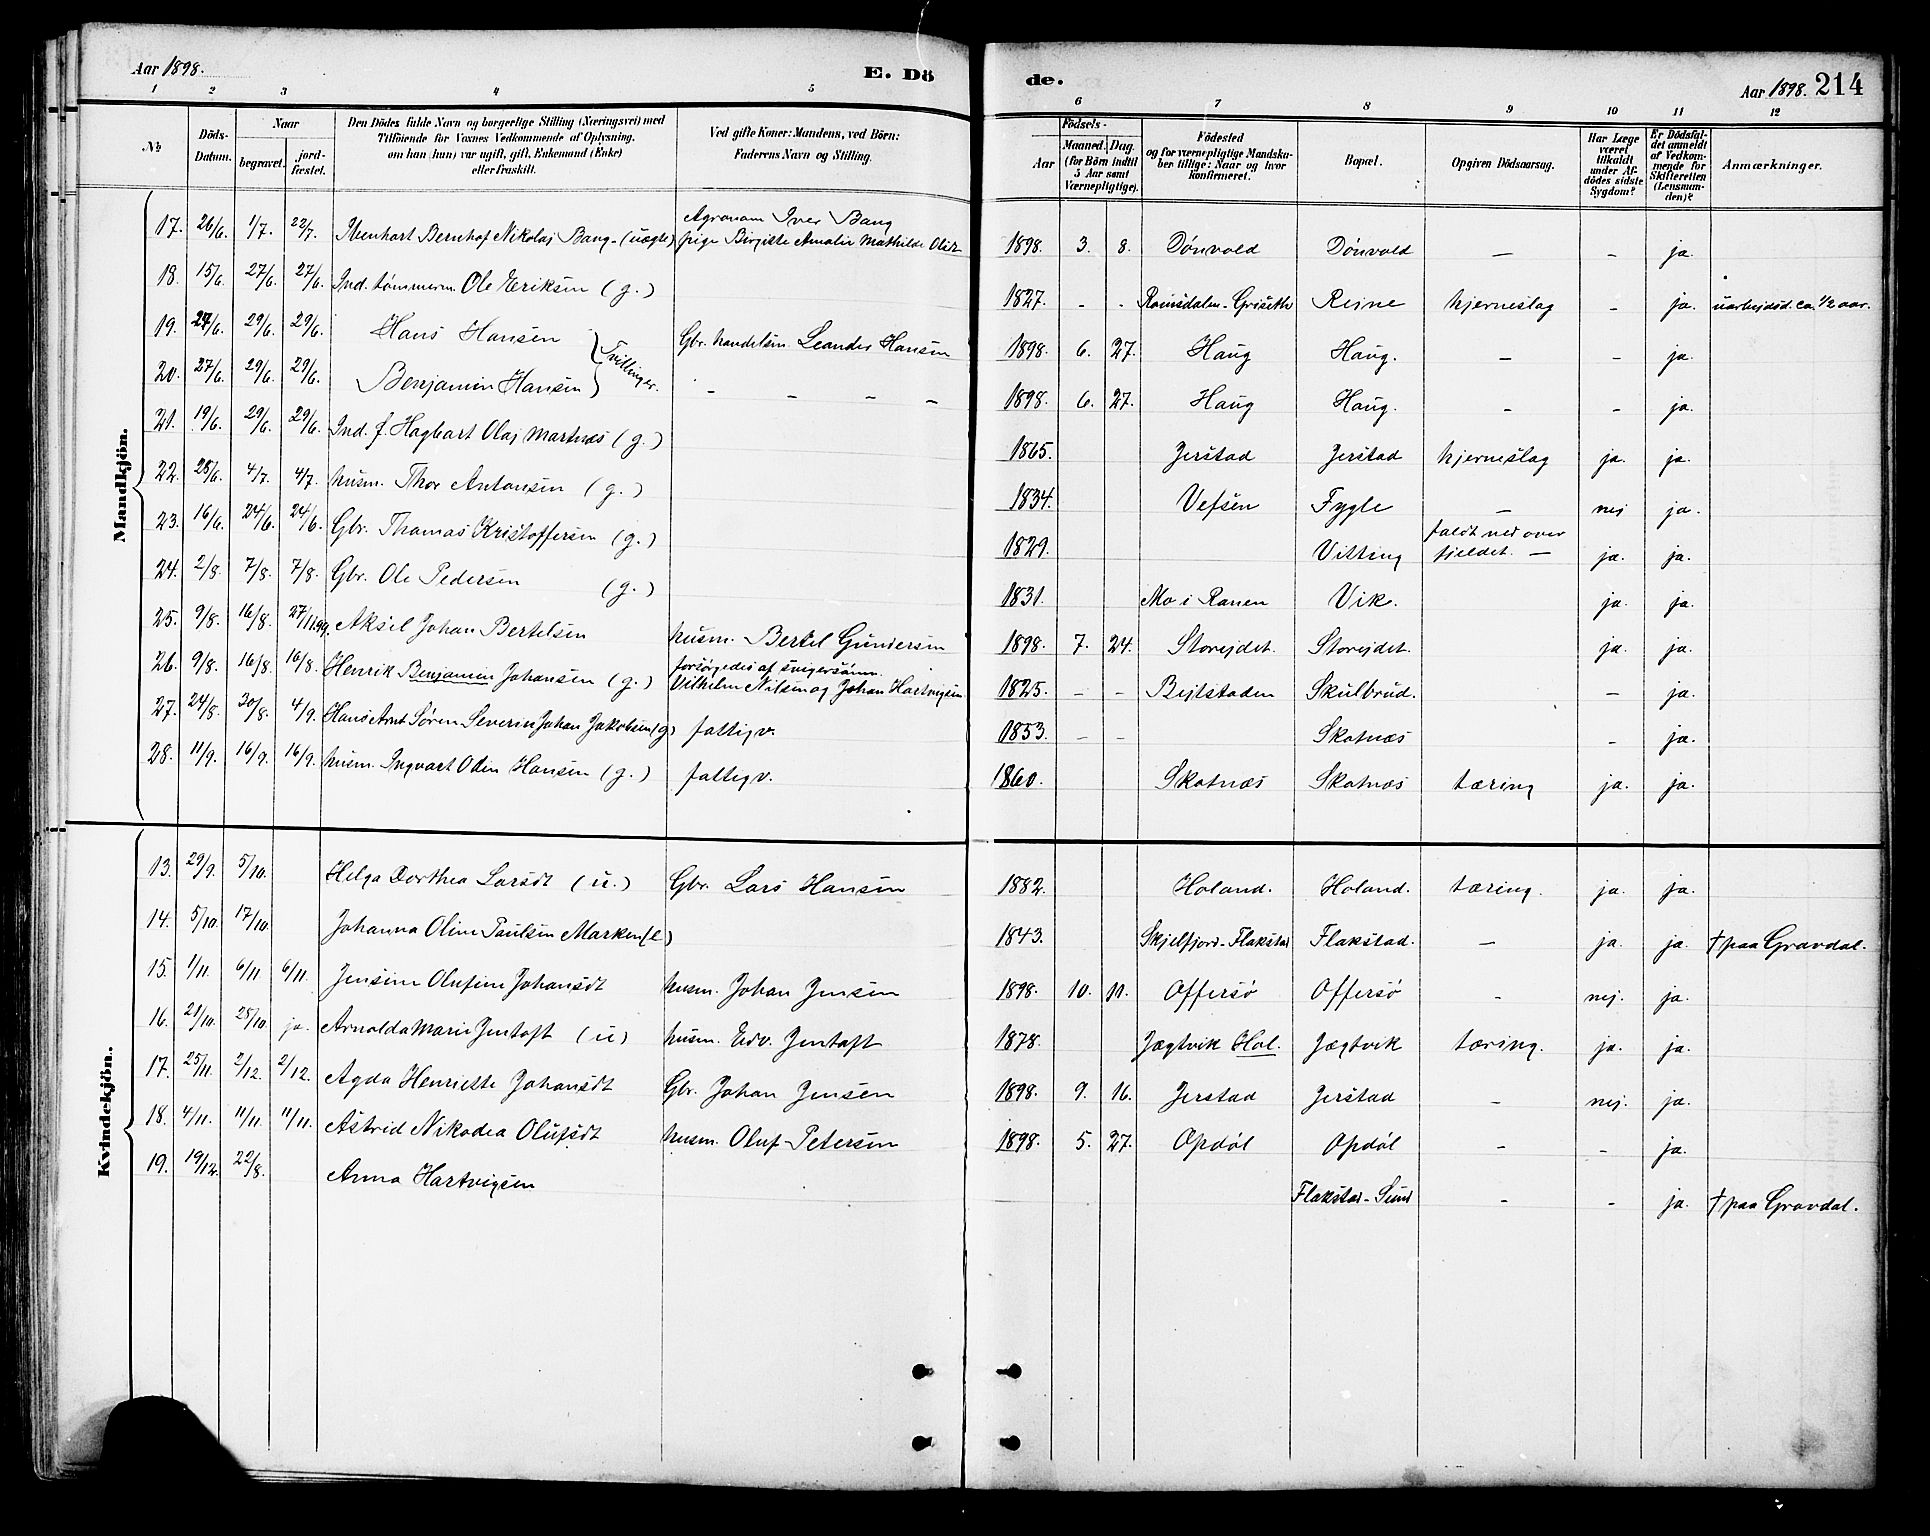 Aar 1898. E. Dö de. Aar 1898. 214
1 2 3 4 5 6 7 8 9 10 11 12
No
Döds-Datum.
Naar
begravet.
jord-fæstet.
Den Dödes fulde Navn og borgerlige Stilling (Næringsvei) med
Tilföiende for Voxnes Vedkommende af Oplysning,
om han (hun) var ugift, gift, Enkemand (Enke)
eller fraskilt.
Ved gifte Koner: Mandens, ved Börn:
Faderens Navn og Stilling.
Födsels-
Aar
Maaned. Dag.
(for Börn indtil
5 Aar samt
Værnepligtige).
Födested
og for værnepligtige Mandska-
ber tillige: Naar og hvor
konfirmeret.
Bopæl.
Opgiven Dödsaarsag.
Har Læge
været
tilkaldt
under Af-
dödes sidste
Sygdom?
Er Dödsfal-
det anmeldt
af Vedkom-
mende for
Skifteretten
(Lensman-
den)?
Anmærkninger.
Mandkjön.
Agronom Iver Bang
17. 26/6. 1/7. 22/7. Meenhart Bernhof Nikolaj Bang - (uægte) pige Birgitte Amalie Mathilde 1898. 3. 8. Dónvold Dónvold — - ja.
18. 15/6. 27/6. 27/6. Ind. tømmerm. Ole Eriksen (g.) 1827. - - Romsdalen - Griseth Rejne hjerneslag - ja. uarbejdsd. ca. 1/2 aar.
19. 27/6. 29/6. 29/6. Hans Hansen } Tvillinger. Gbr. handelsm. Leander Hansen 1898. 6. 27. Haug Haug. — - ja.
20. 27/6. 29/6. 29/6. Benjamin Hansen - - - - 1898. 6. 27. Haug Haug. — - ja.
21. 19/6. 29/6. 29/6. Ind. f. Hagbart Olaj Martnæs (g.) 1865. Jerstad Jerstad hjerneslag ja. ja.
22. 25/6. 4/7. 4/7. husm. Thor Antonsen (g.) 1834. Vefsen Fygle — nej ja.
23. 16/6. 24/6. 24/6. Gbr. Thomas Kristoffersen (g.) 1829. Vitting faldt ned over
fjeldet. — ja. ja.
24. 2/8. 7/8. 7/8. Gbr. Ole Pedersen (g.) 1831. Mo i Ranen Vik. ja. ja.
25. 9/8. 16/8. 27/11.99. Aksel Johan Bertelsen husm. Bertel Gundersen 1898. 7. 24. Storejdet. Storejdet. ja. ja.
forsørgedes af svigersønn.
26. 9/8. 16/8. 16/8. Henrik Benjamin Johansen (g.) Vilhelm Nilsen og Johan Hartvigsen 1825. - - Bejtstaden Skulbrud. - ja.
27. 24/8. 30/8. 4/9. Hans Arnt Søren Severin Johan Jakobsen (g) fattigv. 1853. - - Skotnæs - ja.
28. 11/9. 16/9. 16/9. husm. Ingvart Odin Hansen (g.) fattigv. 1860. Skotnæs Skotnæs tæring ja. ja.
Kvindekjön.
13. 29/9. 5/10. Helga Dorthea Larsdt (u.) Gbr. Lars Hansen 1882. Holand. Holand. tæring. ja. ja.
14. 5/10. 17/10. Johanna Oline Paulsen Marken (e) 1843. Skjelfjord - Flakstad Flakstad. — ja. ja. † paa Gravdal.
15. 1/11. 6/11. 6/11. Jensine Olufine Johansdt husm. Johan Jensen 1898. 10. 11. Offersø Offersø - nej. ja.
16. 21/10. 25/10. ja. Arnolda Marie Jentoft (u) husm. Edv. Jentoft 1878. Jægtvik Hol. Jægtvik tæring. ja. ja.
17. 25/11. 2/12. 2/12. Agda Henriette Johansdt Gbr. Johan Jensen 1898. 9. 16. Jerstad Jerstad - nej. ja.
18. 4/11. 11/11. 11/11. Astrid Nikodea Olufsdt husm. Oluf Petersen 1898. 5. 27. Opdøl Opdøl - - ja.
19. 19/12. 22/8. Anna Hartvigsen Flakstad - Sund - - ja. † paa Gravdal.